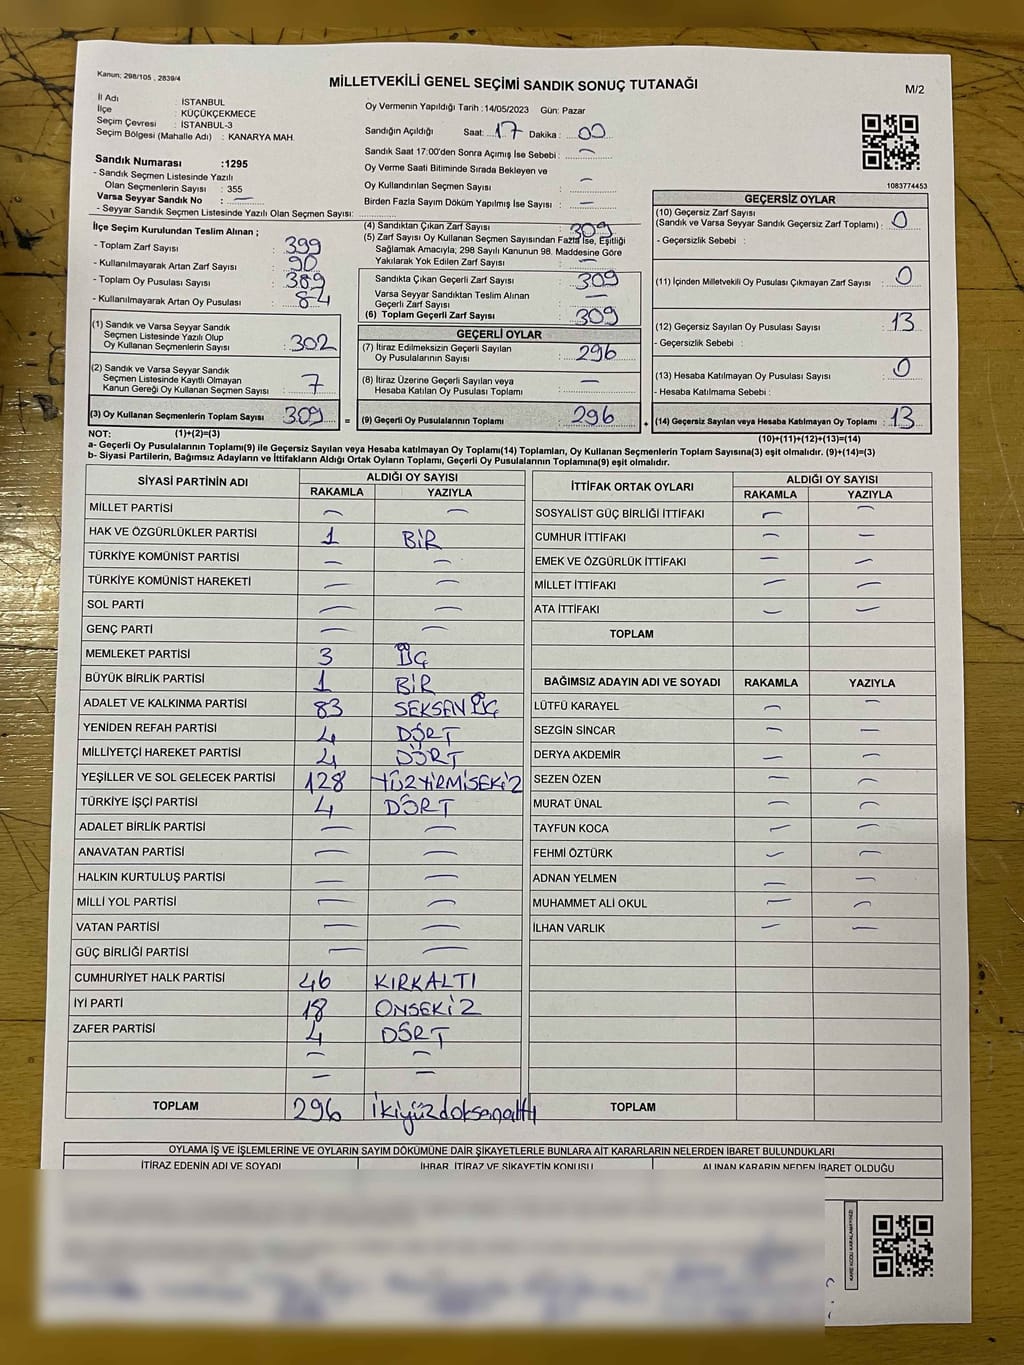 Kanun; 298/105 , 2839/4
MİLLETVEKİLİ GENEL SEÇİMİ SANDIK SONUÇ TUTANAĞI
M/2
İl Adı : İSTANBUL
İlçe : KÜÇÜKÇEKMECE
Seçim Çevresi : İSTANBUL-3
Seçim Bölgesi (Mahalle Adı) : KANARYA MAH.
Oy Vermenin Yapıldığı Tarih :14/05/2023 Gün: Pazar
Sandığın Açıldığı Saat: 17 Dakika : 00
Sandık Saat 17:00'den Sonra Açımış İse Sebebi : —
Oy Verme Saati Bitiminde Sırada Bekleyen ve
Oy Kullandırılan Seçmen Sayısı : —
Birden Fazla Sayım Döküm Yapılmış İse Sayısı : —
1083774453
Sandık Numarası :1295
- Sandık Seçmen Listesinde Yazılı
Olan Seçmenlerin Sayısı : 355
Varsa Seyyar Sandık No : —
- Seyyar Sandık Seçmen Listesinde Yazılı Olan Seçmen Sayısı:
İlçe Seçim Kurulundan Teslim Alınan ;
- Toplam Zarf Sayısı : 399
- Kullanılmayarak Artan Zarf Sayısı : 90
- Toplam Oy Pusulası Sayısı : 389
- Kullanılmayarak Artan Oy Pusulası : 84
(1) Sandık ve Varsa Seyyar Sandık
Seçmen Listesinde Yazılı Olup
Oy Kullanan Seçmenlerin Sayısı : 302
(2) Sandık ve Varsa Seyyar Sandık
Seçmen Listesinde Kayıtlı Olmayan
Kanun Gereği Oy Kullanan Seçmen Sayısı : 7
(3) Oy Kullanan Seçmenlerin Toplam Sayısı : 309 =
(1)+(2)=(3)
(4) Sandıktan Çıkan Zarf Sayısı : 309
(5) Zarf Sayısı Oy Kullanan Seçmen Sayısından Fazla İse, Eşitliği
Sağlamak Amacıyla; 298 Sayılı Kanunun 98. Maddesine Göre
Yakılarak Yok Edilen Zarf Sayısı : —
Sandıkta Çıkan Geçerli Zarf Sayısı : 309
Varsa Seyyar Sandıktan Teslim Alınan
Geçerli Zarf Sayısı : —
(6) Toplam Geçerli Zarf Sayısı : 309
GEÇERLİ OYLAR
(7) İtiraz Edilmeksizin Geçerli Sayılan
Oy Pusulalarının Sayısı : 296
(8) İtiraz Üzerine Geçerli Sayılan veya
Hesaba Katılan Oy Pusulası Toplamı : —
(9) Geçerli Oy Pusulalarının Toplamı : 296 +
GEÇERSİZ OYLAR
(10) Geçersiz Zarf Sayısı
(Sandık ve Varsa Seyyar Sandık Geçersiz Zarf Toplamı) : 0
- Geçersizlik Sebebi :
(11) İçinden Milletvekili Oy Pusulası Çıkmayan Zarf Sayısı : 0
(12) Geçersiz Sayılan Oy Pusulası Sayısı : 13
- Geçersizlik Sebebi :
(13) Hesaba Katılmayan Oy Pusulası Sayısı : 0
- Hesaba Katılmama Sebebi :
(14) Geçersiz Sayılan veya Hesaba Katılmayan Oy Toplamı : 13
(10)+(11)+(12)+(13)=(14)
NOT:
a- Geçerli Oy Pusulalarının Toplamı(9) ile Geçersiz Sayılan veya Hesaba katılmayan Oy Toplamı(14) Toplamları, Oy Kullanan Seçmenlerin Toplam Sayısına(3) eşit olmalıdır. (9)+(14)=(3)
b- Siyasi Partilerin, Bağımsız Adayların ve İttifakların Aldığı Ortak Oyların Toplamı, Geçerli Oy Pusulalarının Toplamına(9) eşit olmalıdır.
SİYASİ PARTİNİN ADI ALDIĞI OY SAYISI
RAKAMLA YAZIYLA
MİLLET PARTİSİ — —
HAK VE ÖZGÜRLÜKLER PARTİSİ 1 BİR
TÜRKİYE KOMÜNİST PARTİSİ — —
TÜRKİYE KOMÜNİST HAREKETİ — —
SOL PARTİ — —
GENÇ PARTİ — —
MEMLEKET PARTİSİ 3 ÜÇ
BÜYÜK BİRLİK PARTİSİ 1 BİR
ADALET VE KALKINMA PARTİSİ 83 SEKSEN ÜÇ
YENİDEN REFAH PARTİSİ 4 DÖRT
MİLLİYETÇİ HAREKET PARTİSİ 4 DÖRT
YEŞİLLER VE SOL GELECEK PARTİSİ 128 YÜZYİRMİSEKİZ
TÜRKİYE İŞÇİ PARTİSİ 4 DÖRT
ADALET BİRLİK PARTİSİ — —
ANAVATAN PARTİSİ — —
HALKIN KURTULUŞ PARTİSİ — —
MİLLİ YOL PARTİSİ — —
VATAN PARTİSİ — —
GÜÇ BİRLİĞİ PARTİSİ — —
CUMHURİYET HALK PARTİSİ 46 KIRKALTI
İYİ PARTİ 18 ONSEKİZ
ZAFER PARTİSİ 4 DÖRT
— —
— —
TOPLAM 296 ikiyüzdoksanaltı
İTTİFAK ORTAK OYLARI ALDIĞI OY SAYISI
RAKAMLA YAZIYLA
SOSYALIST GÜÇ BİRLİĞİ İTTİFAKI — —
CUMHUR İTTİFAKI — —
EMEK VE ÖZGÜRLÜK İTTİFAKI — —
MİLLET İTTİFAKI — —
ATA İTTİFAKI — —
TOPLAM
BAĞIMSIZ ADAYIN ADI VE SOYADI RAKAMLA YAZIYLA
LÜTFÜ KARAYEL — —
SEZGİN SİNCAR — —
DERYA AKDEMİR — —
SEZEN ÖZEN — —
MURAT ÜNAL — —
TAYFUN KOCA — —
FEHMİ ÖZTÜRK — —
ADNAN YELMEN — —
MUHAMMET ALİ OKUL — —
İLHAN VARLIK — —
TOPLAM
OYLAMA İŞ VE İŞLEMLERİNE VE OYLARIN SAYIM DÖKÜMÜNE DAİR ŞİKAYETLERLE BUNLARA AİT KARARLARIN NELERDEN İBARET BULUNDUKLARI
İTİRAZ EDENİN ADI VE SOYADI İHBAR, İTİRAZ VE ŞİKAYETİN KONUSU ALINAN KARARIN NEDEN İBARET OLDUĞU
KARE KODU KARALAMAYINIZ!